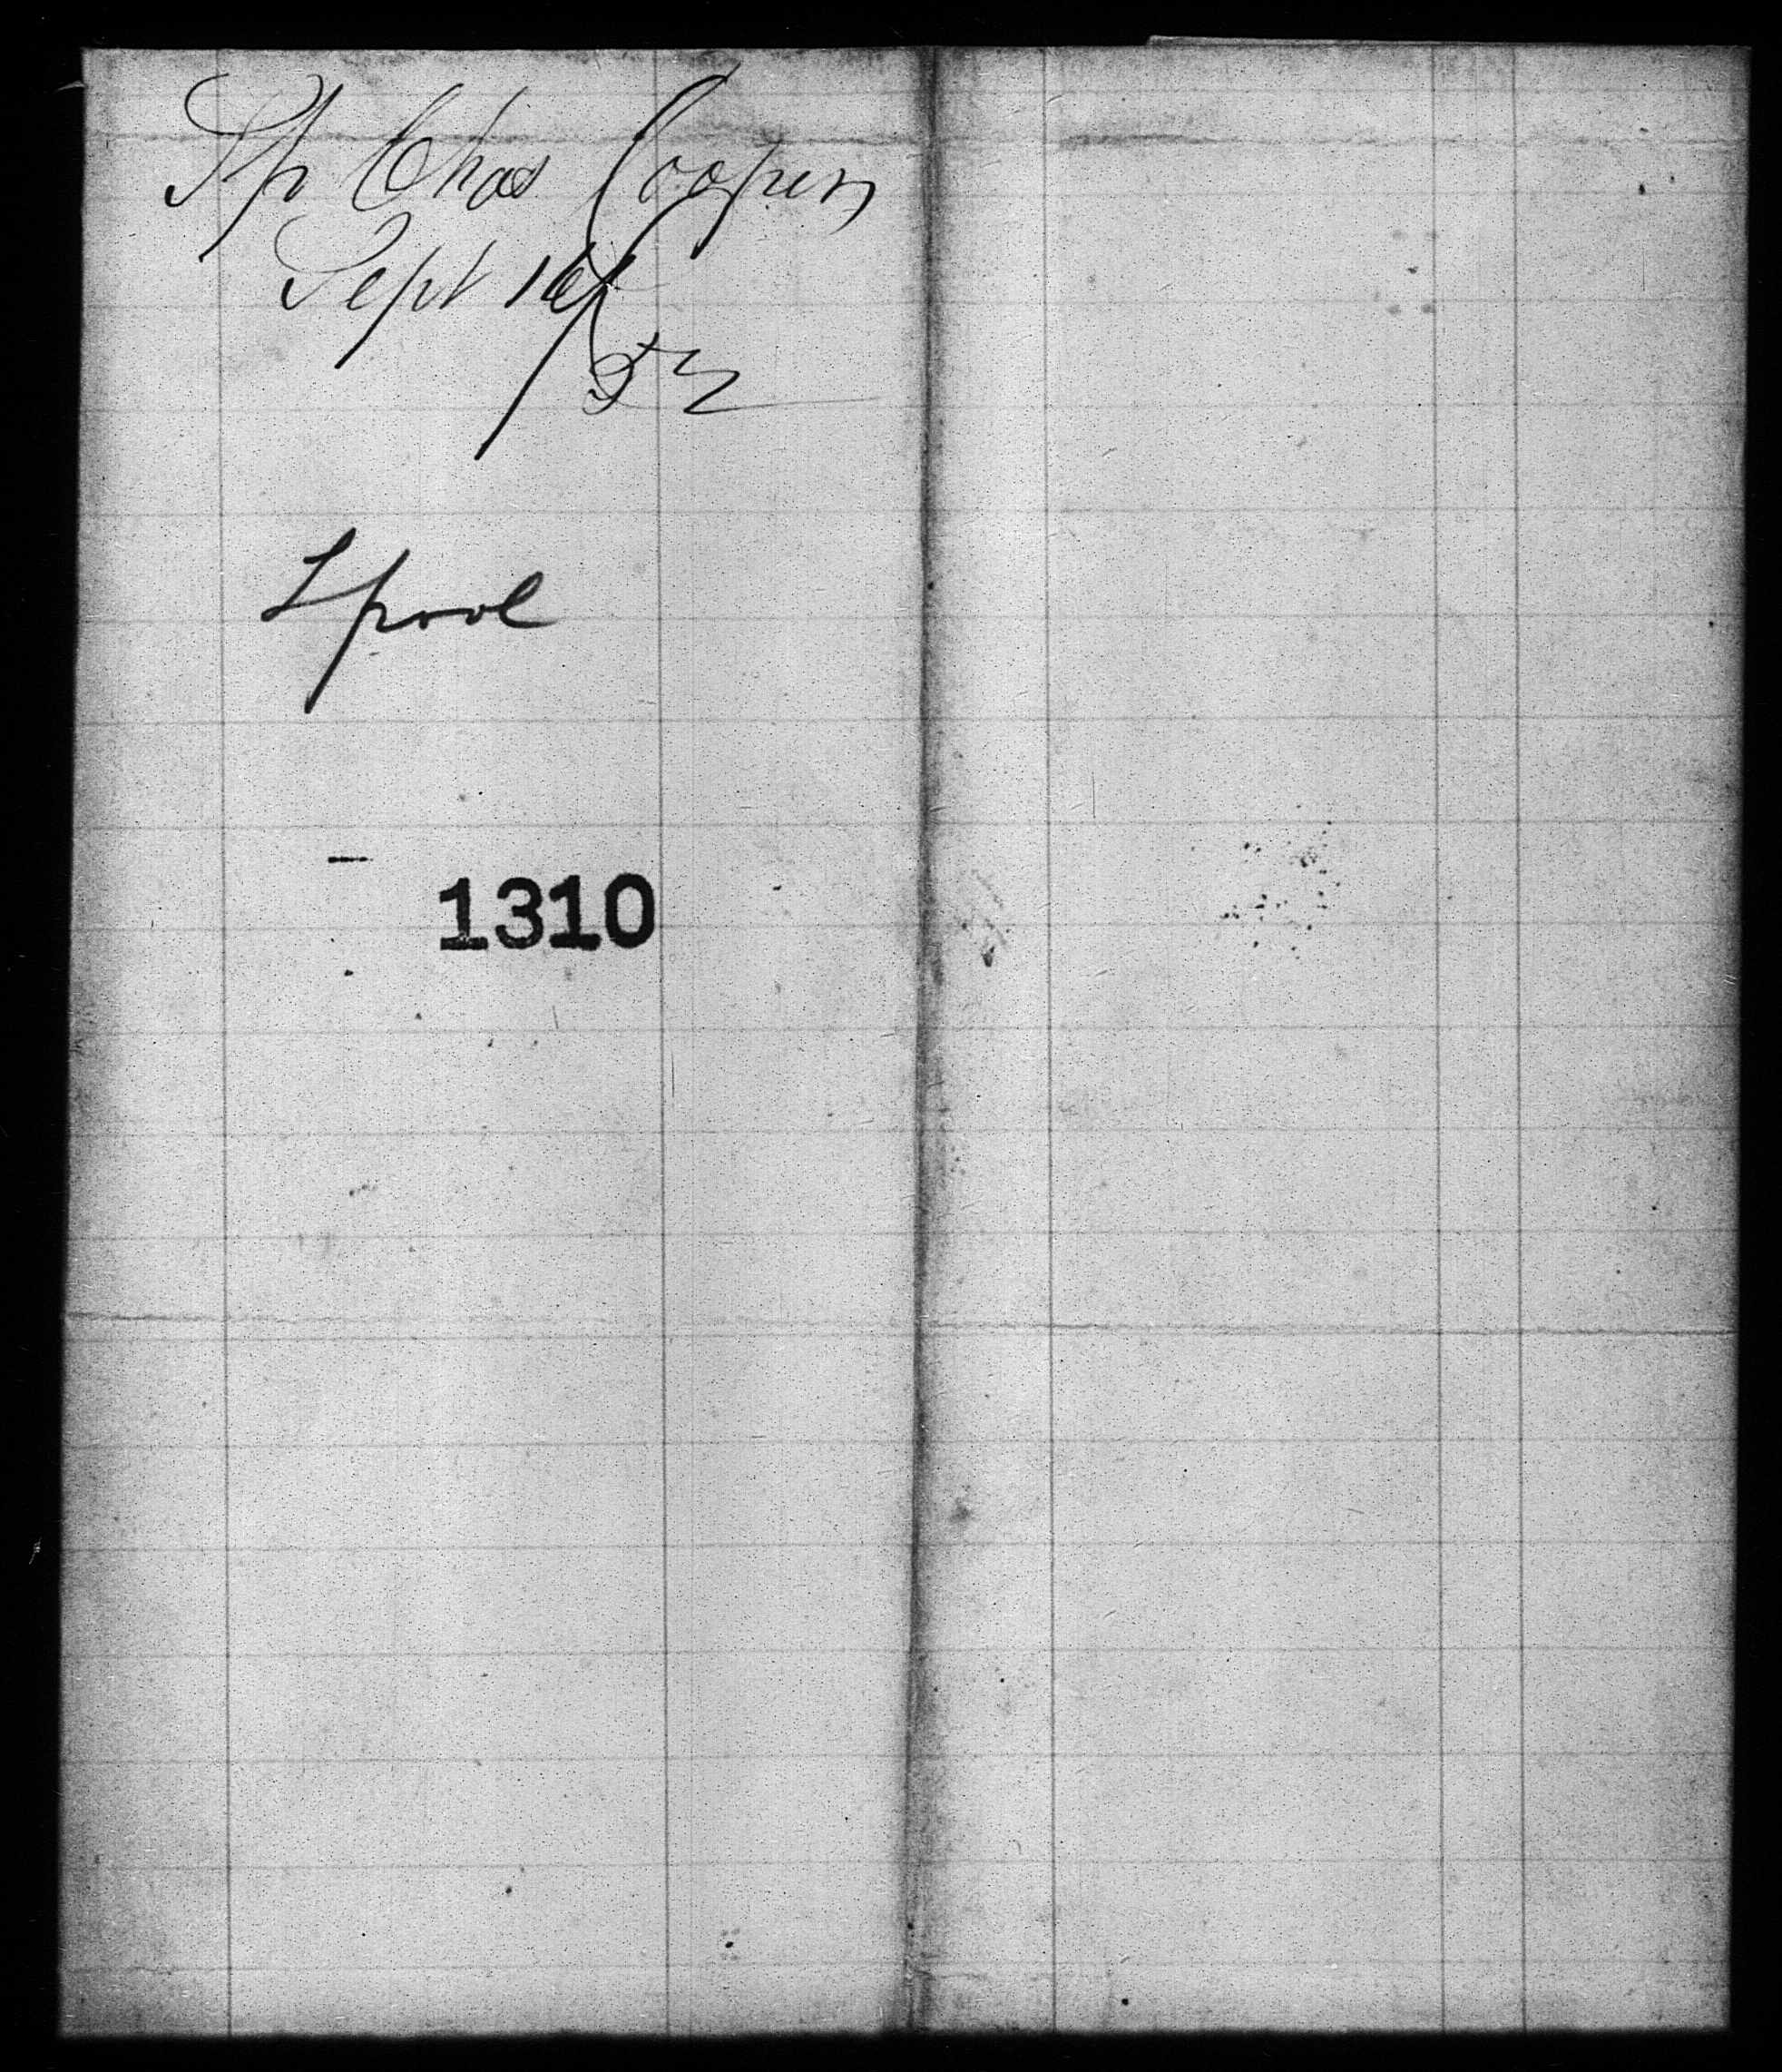 Sh Chas Cooper
Sept 16/
52
Lpool
1310